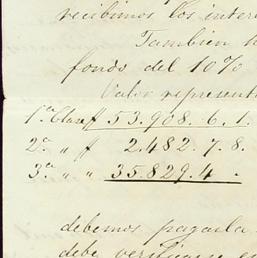 recibimos los inter
Tambien h
fondo del 10%
Valor represent
1ª Clase ƒƒ 53.908.6.1.
2ª " ƒ 2.482.7.8.
3ª " " 35.829.4 .
debemos pagarla
debe verificarse e